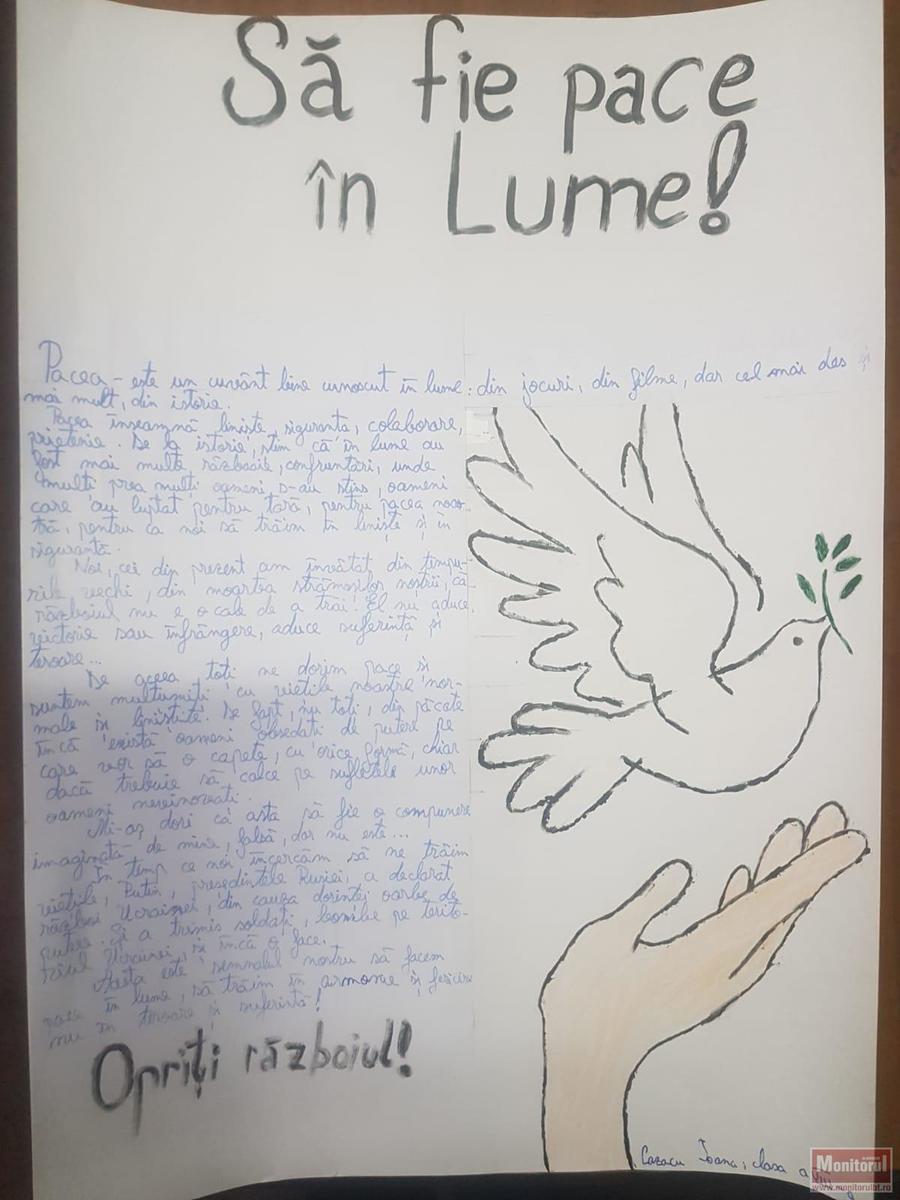 Să fie pace
în Lume!
Pacea - este un cuvânt bine cunoscut în lume: din jocuri, din filme, dar cel mai des și
mai mult, din istorie.
Pacea înseamnă liniște, siguranta, colaborare,
prietenie. De la istorie, știm că în lume au
fost mai multe războaie, confruntări, unde
multi prea multi oameni s-au stins, oameni
care au luptat pentru țară, pentru pacea noas-
tră, pentru ca noi să trăim în liniște și în
siguranță.
Noi, cei din prezent am învătat din timpu-
rile vechi, din moartea strămosilor nostrii, că
războiul nu e o cale de a trăi. El nu aduce
victorie sau înfrângere, aduce suferință și
teroare...
De aceea toti ne dorim pace si
suntem multumiți cu viețile noastre nor-
male si linistite. De fapt, nu toti, din păcate
încă există oameni obsedati de putere pe
care vor să o capete, cu orice formă, chiar
dacă trebuie să calce pe sufletele unor
oameni nevinovati.
Mi-aș dori ca asta să fie o compunere
imaginată de mine, falsă, dar nu este...
În timp ce noi încercăm să ne trăim
viețile, Putin, președintele Rusiei, a declarat
război Ucrainei, din cauza dorintei oarbe de
putere. Și a trimis soldați, bombe pe terito-
riul Ucrainei, și încă o face.
Asta este semnalul nostru să facem
pace în lume, să trăim în armonie și fericire
nu în teroare și suferintă!
Opriți războiul!
Cazacu Ioana, clasa a
Monitorul
www.monitorulbt.ro